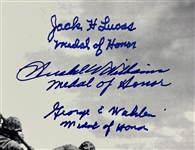 Jack H Lucas
Medal of Honor
Hershel W Williams
Medal of Honor
George E Wahlen
Medal of Honor